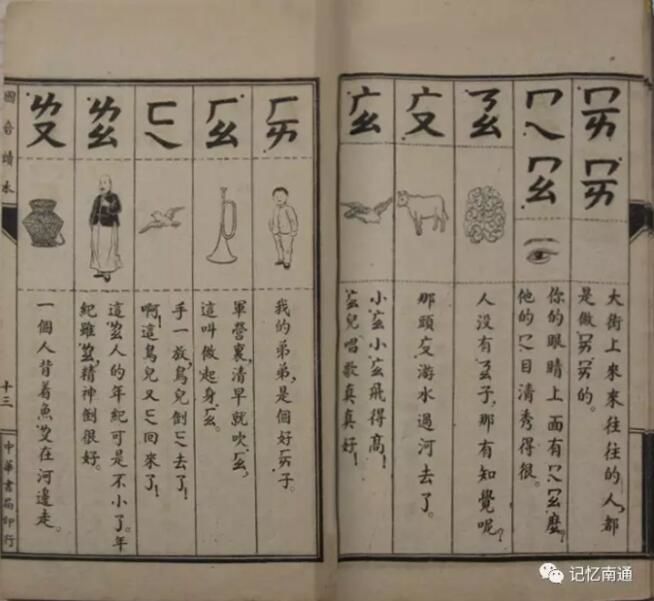 ㄇㄞ ㄇㄞ
大街上來來往往的人,都
是做ㄇㄞㄇㄞ的。
ㄇㄟ ㄇㄠ
你的眼睛上面有ㄇㄟㄇㄠ麼?
他的ㄇㄟ目清秀得很。
ㄋㄠ
人没有ㄋㄠ子,那有知覺呢?
ㄬㄡ
那頭ㄬㄡ游水過河去了。
ㄬㄠ
小ㄬㄠ小ㄬㄠ飛得高!
ㄬㄠ兒唱歌真真好!
ㄏㄞ
我的弟弟,是個好ㄏㄞ子。
ㄏㄠ
軍營裏,清早就吹ㄏㄠ,
這叫做起身ㄏㄠ。
ㄈㄟ
手一放,鳥兒倒ㄈㄟ去了!
啊!這鳥兒又ㄈㄟ回來了!
ㄌㄠ
這ㄌㄠ人的年紀可是不小了。年
紀雖ㄌㄠ,精神倒很好。
ㄌㄡ
一個人背着魚ㄌㄡ在河邊走。
國音讀本
十三
中華書局印行
记忆南通